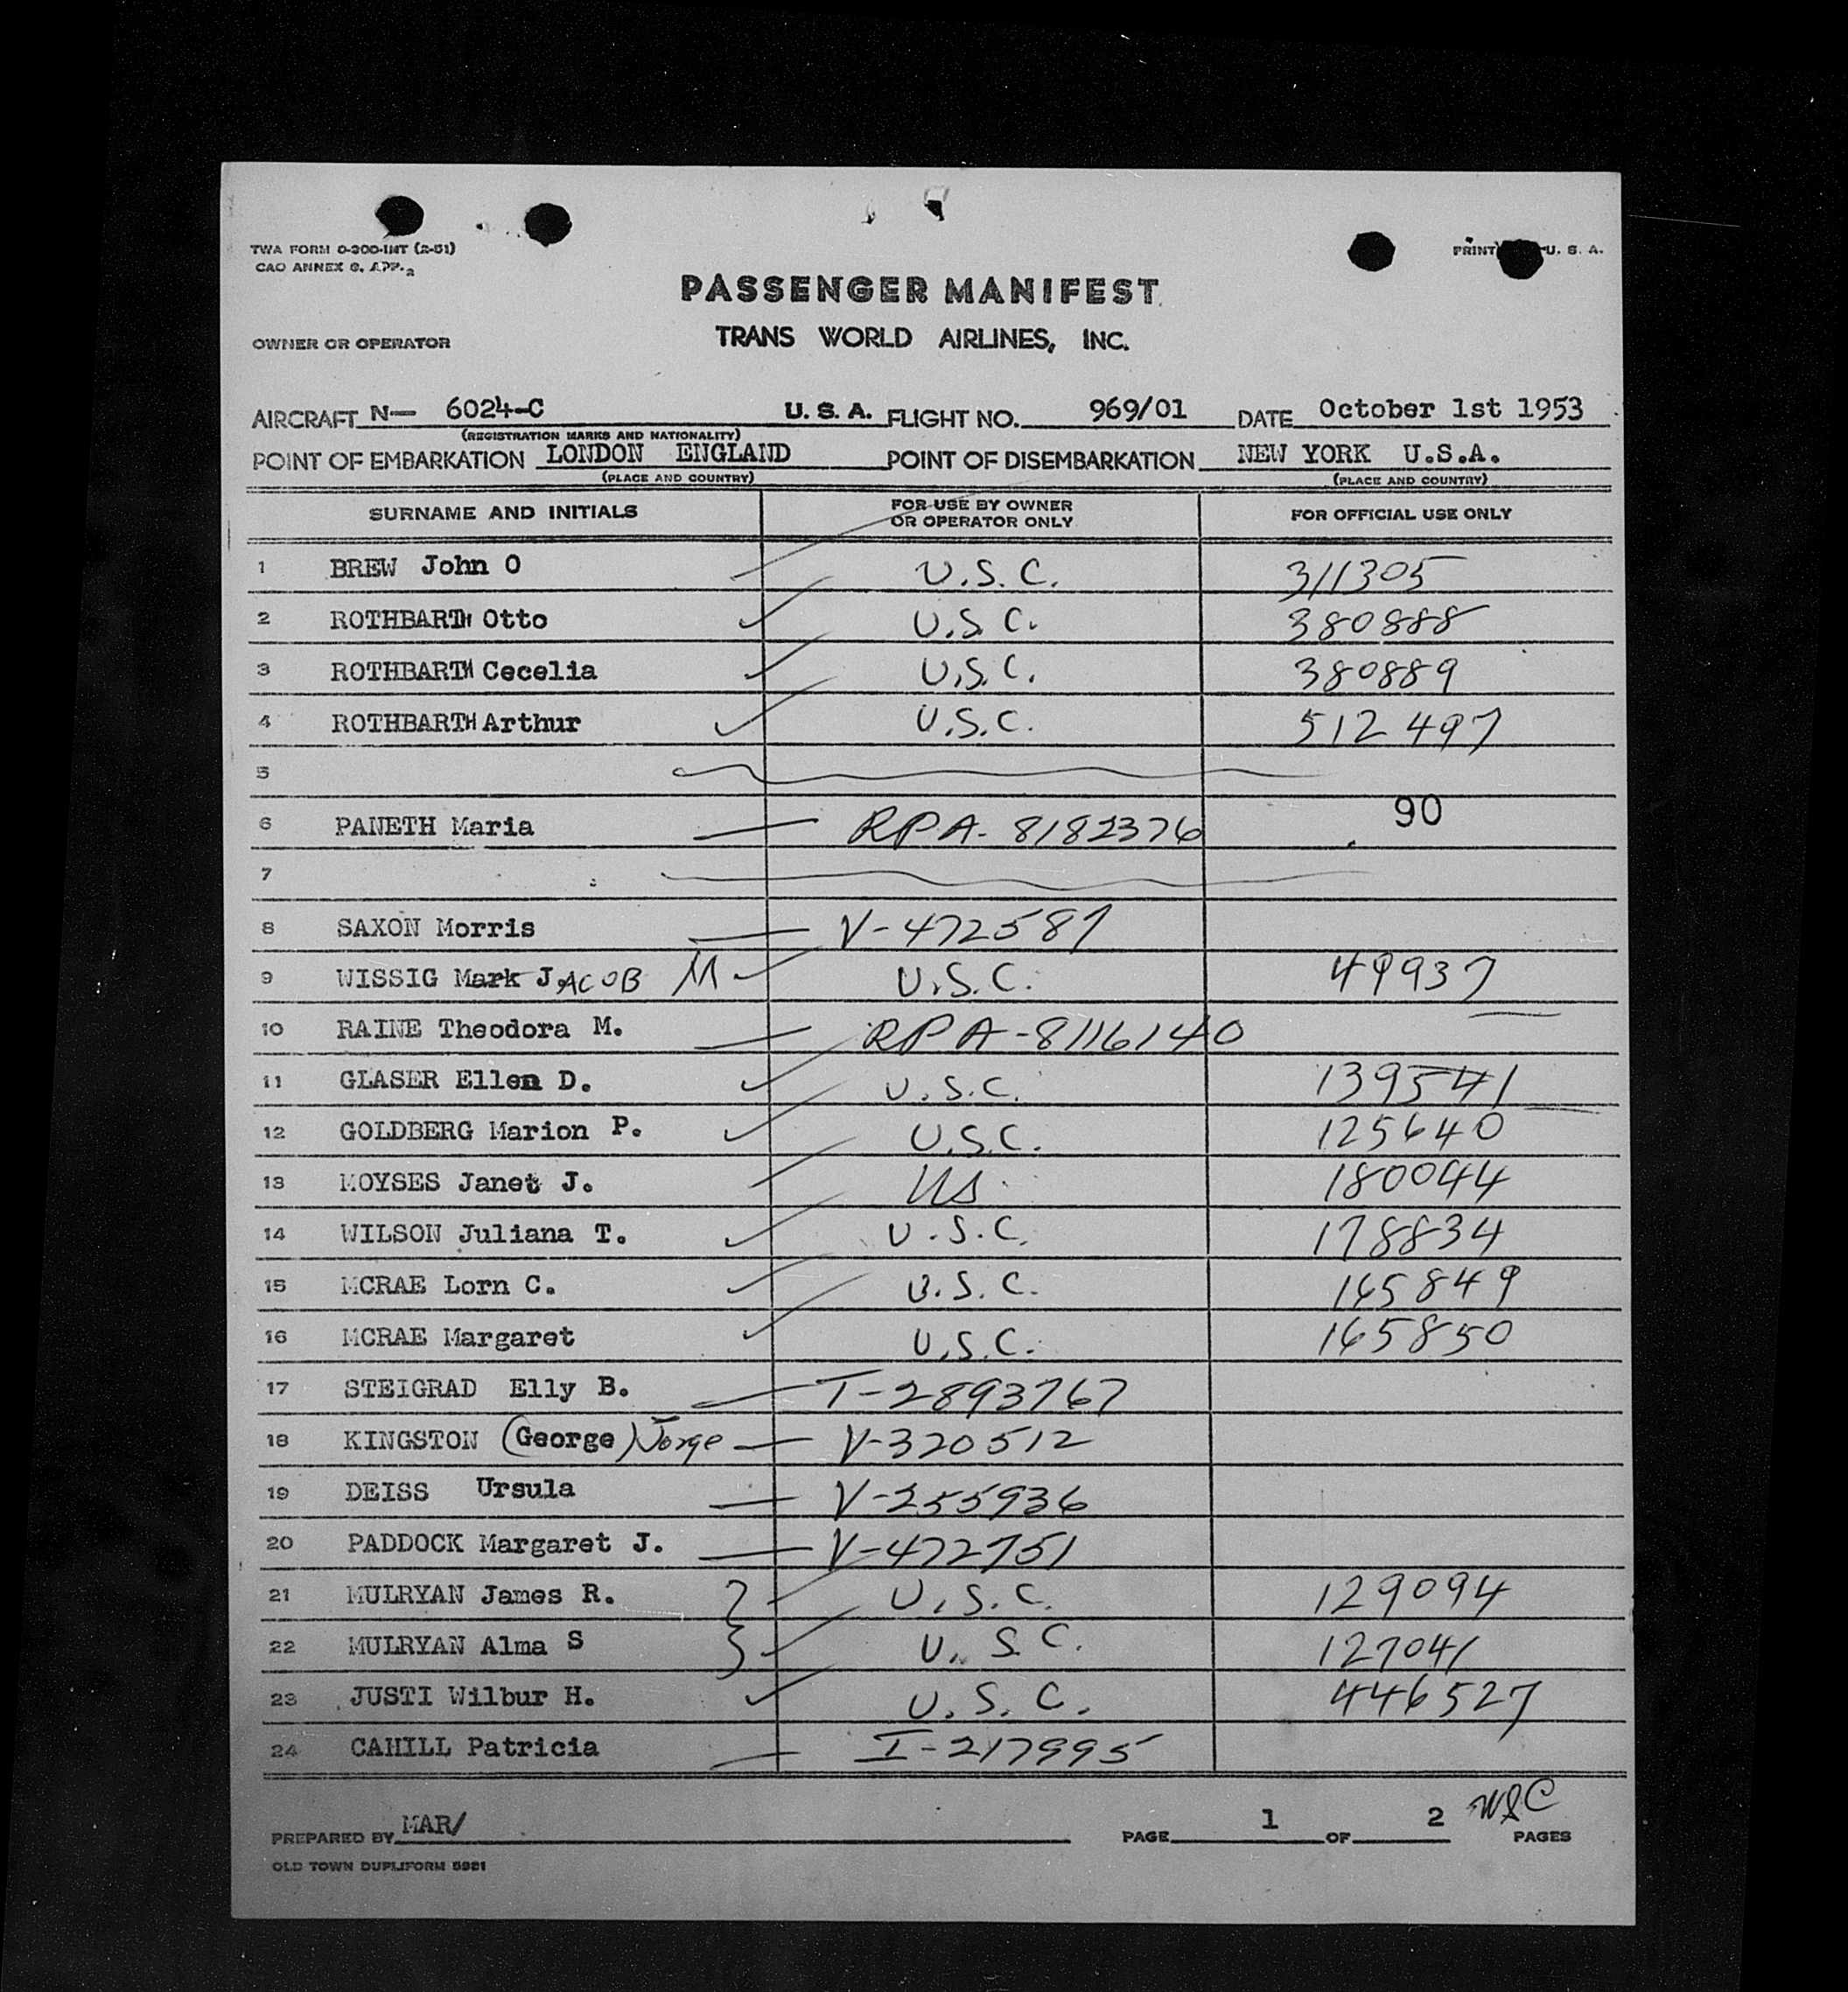 TWA FORM 0-300-INT (2-51)
CAO ANNEX 9, APP. 2
PRINT U. S. A.
PASSENGER MANIFEST
OWNER OR OPERATOR TRANS WORLD AIRLINES, INC.
AIRCRAFT N— 6024-C U. S. A. FLIGHT NO. 969/01 DATE October 1st 1953
(REGISTRATION MARKS AND NATIONALITY)
POINT OF EMBARKATION LONDON ENGLAND POINT OF DISEMBARKATION NEW YORK U.S.A.
(PLACE AND COUNTRY) (PLACE AND COUNTRY)
SURNAME AND INITIALS FOR USE BY OWNER OR OPERATOR ONLY FOR OFFICIAL USE ONLY
1 BREW John O U.S.C. 311305
2 ROTHBARTH Otto U.S.C. 380888
3 ROTHBARTH Cecelia U.S.C. 380889
4 ROTHBARTH Arthur U.S.C. 512497
5
90
6 PANETH Maria RPA-8182376
7
8 SAXON Morris V-472587
9 WISSIG Mark JACOB M U.S.C. 49937
10 RAINE Theodora M. RPA-8116140
11 GLASER Ellen D. U.S.C. 139541
12 GOLDBERG Marion P. U.S.C. 125640
13 MOYSES Janet J. US 180044
14 WILSON Juliana T. U.S.C. 178834
15 MCRAE Lorn C. U.S.C. 165849
16 MCRAE Margaret U.S.C. 165850
17 STEIGRAD Elly B. T-2893767
18 KINGSTON (George) Jorge V-320512
19 DEISS Ursula V-255936
20 PADDOCK Margaret J. V-472751
21 MULRYAN James R. U.S.C. 129094
22 MULRYAN Alma S U.S.C. 127041
23 JUSTI Wilbur H. U.S.C. 446527
24 CAHILL Patricia I-217995
PREPARED BY MAR/ PAGE 1 OF 2 PAGES
OLD TOWN DUPLIFORM